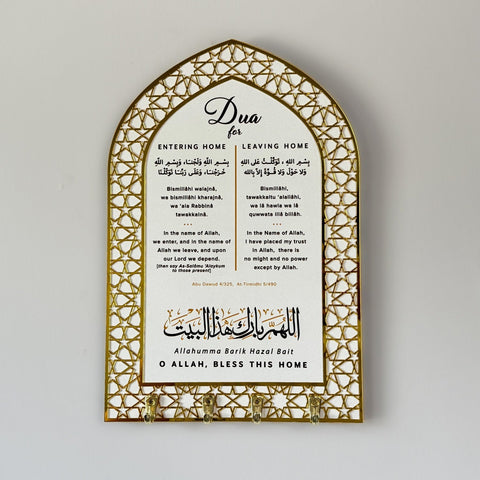 Dua
for
ENTERING HOME
بِسْمِ اللهِ وَلَجْنَا، وَبِسْمِ اللهِ
خَرَجْنَا، وَعَلَى رَبِّنَا تَوَكَّلْنَا
Bismillâhi walajnâ,
wa bismillâhi kharajnâ,
wa 'ala Rabbinâ
tawakkalnâ.
In the name of Allah,
we enter, and in the name of
Allah we leave, and upon
our Lord we depend.
[then say As-Salâmu 'Alaykum
to those present]
LEAVING HOME
بِسْمِ اللهِ ، تَوَكَّلْتُ عَلَى اللهِ
وَلَا حَوْلَ وَلَا قُوَّةَ إِلَّا بِاللهِ
Bismillâhi,
tawakkaltu 'alallâhi,
wa lâ hawla wa lâ
quwwata illâ billâh.
In the Name of Allah,
I have placed my trust
in Allah, there is
no might and no power
except by Allah.
Abu Dawud 4/325, At-Tirmidhi 5/490
اللهم بارك هذا البيت
Allahumma Barik Hazal Bait
O ALLAH, BLESS THIS HOME